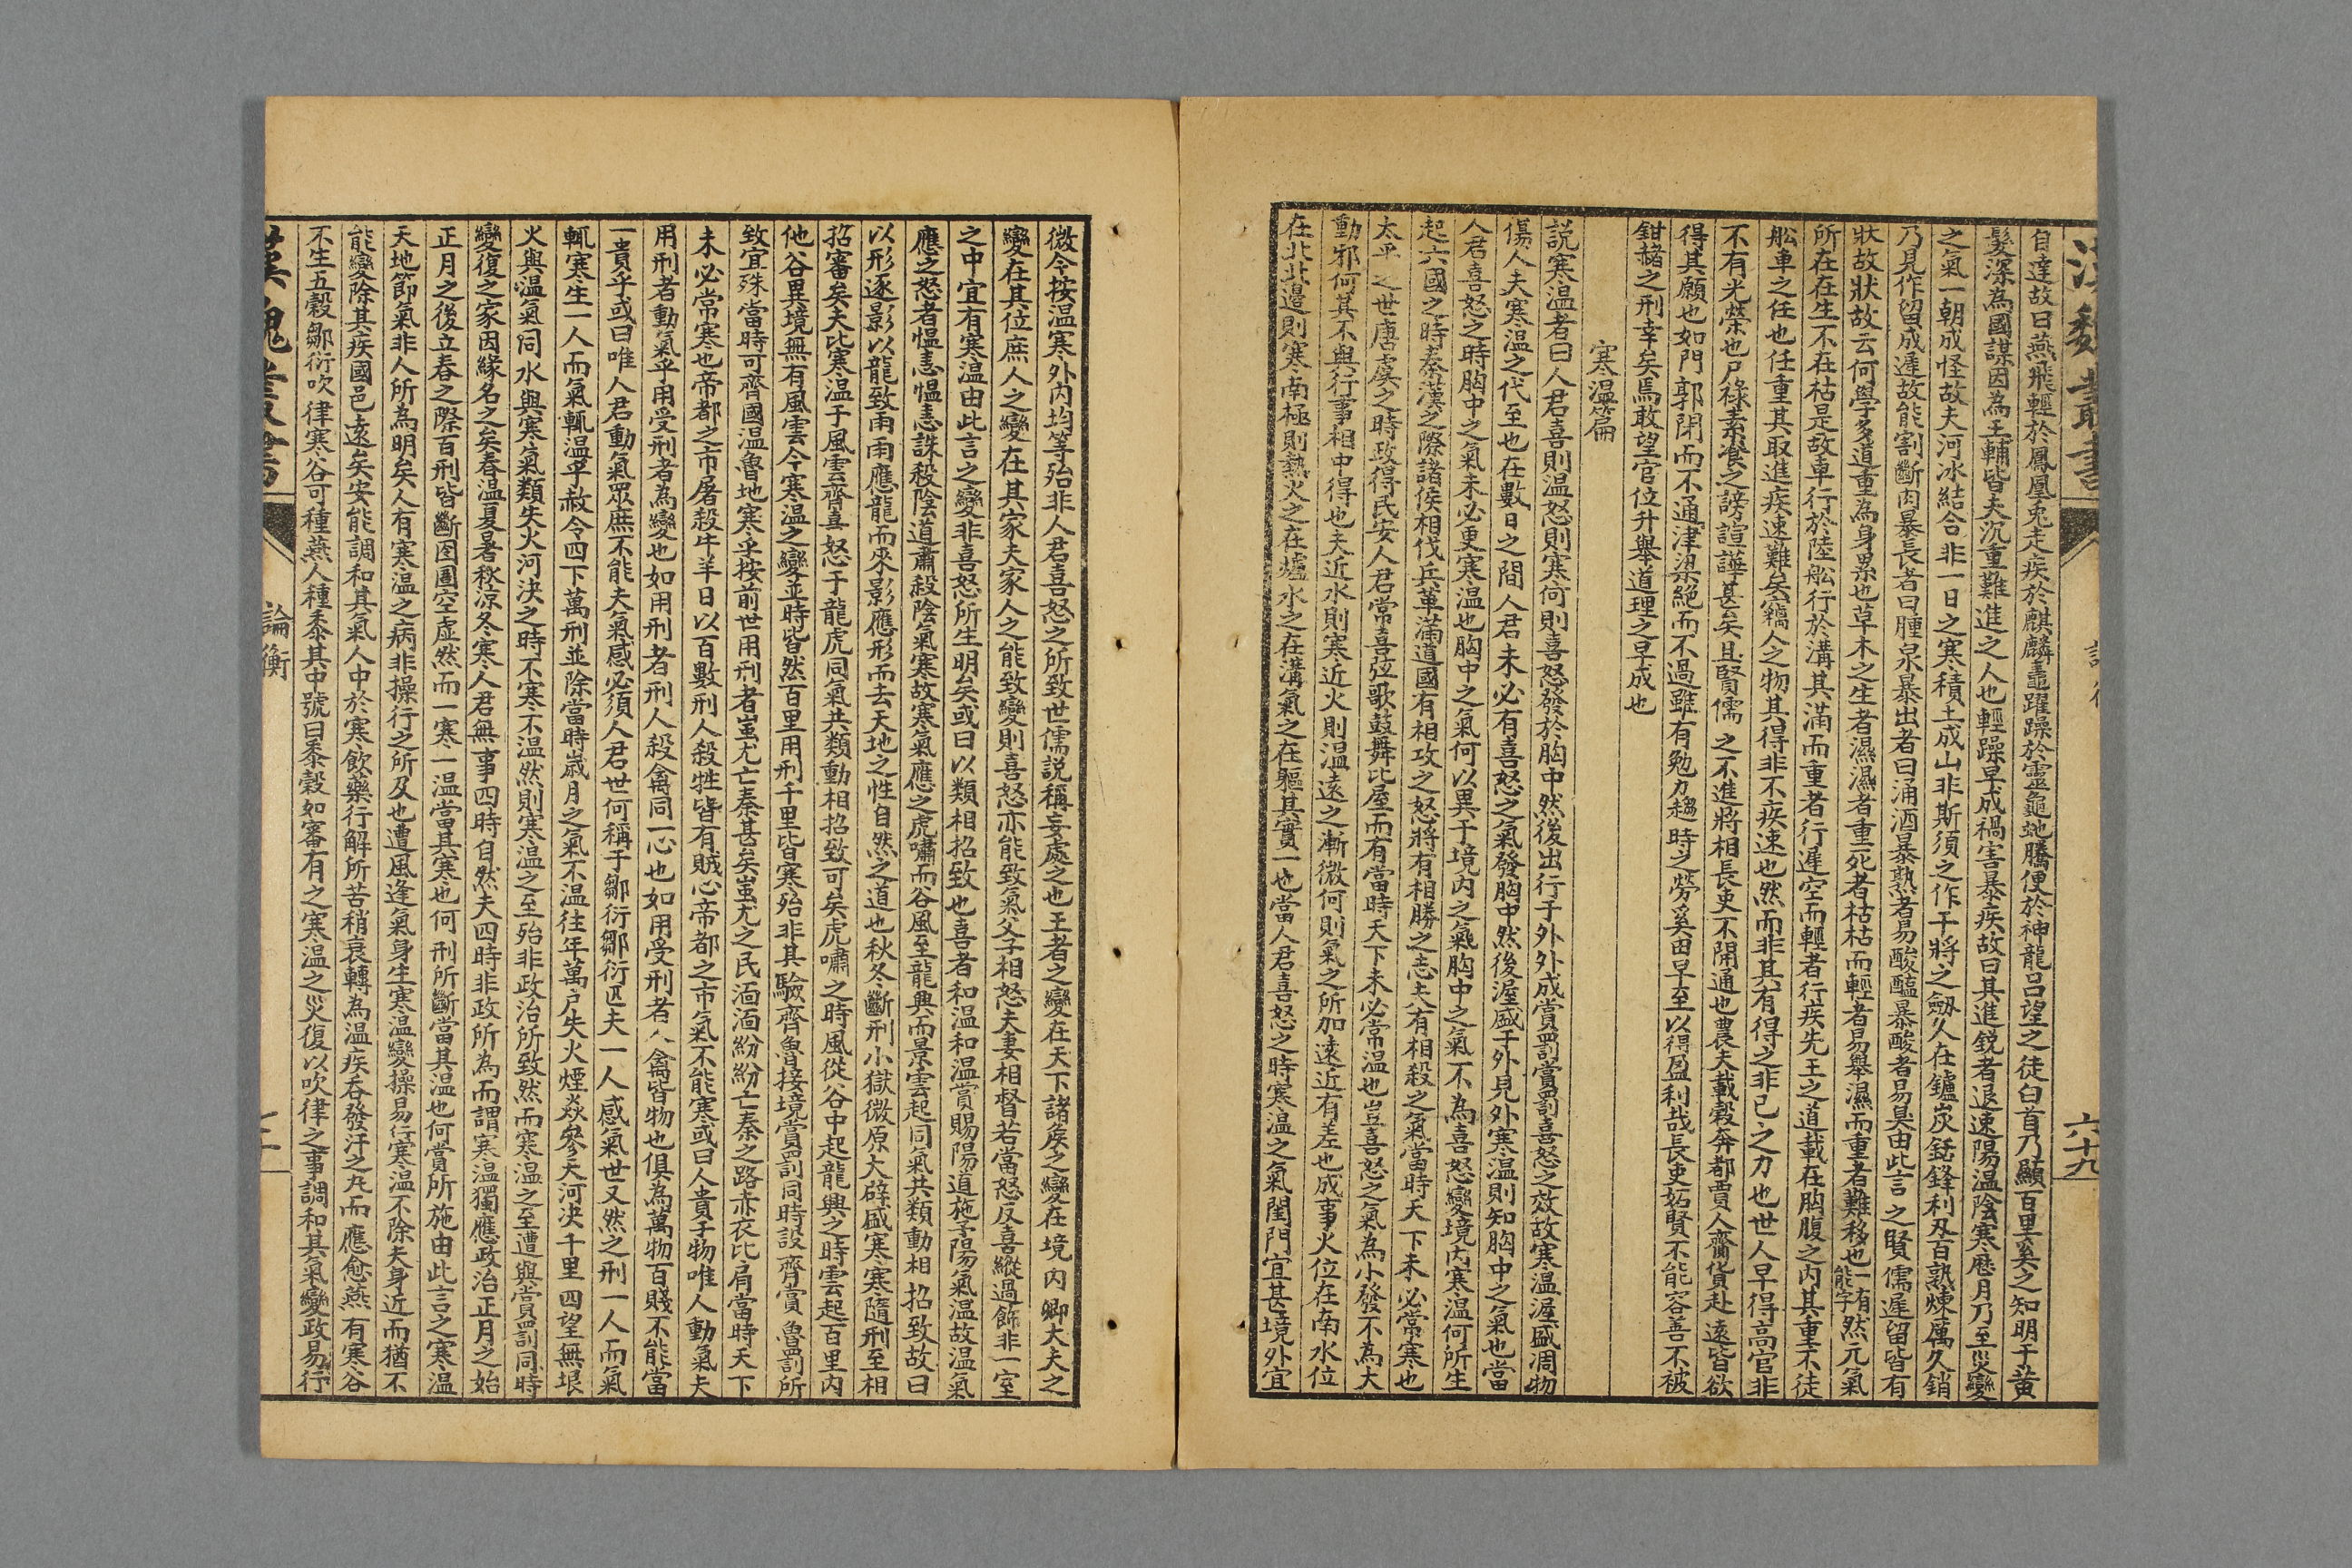 漢魏叢書
六十九
自達故曰燕飛輕於鳳凰兎走疾於麒麟鼃躍躁於靈龜虵騰便於神龍吕望之徒白首乃顯百里奚之知明于黄
髮深為國謀因為王輔皆夫沉重難進之人也輕躁早成禍害暴疾故曰其進鋭者退速陽温陰寒歷月乃至災變
之氣一朝成怪故夫河冰結合非一日之寒積土成山非斯須之作干將之劒久在鑪炭銛鋒利刃百熟煉厲久銷
乃見作留成遲故能割斷肉暴長者曰腫泉暴出者曰涌酒暴熟者易酸醢暴酸者易臭由此言之賢儒遲留皆有
狀故狀故云何學多道重為身累也草木之生者濕濕者重死者枯枯而輕者易舉濕而重者難移也一有能字然元氣
所在在生不在枯是故車行於陸舩行於溝其滿而重者行遲空而輕者行疾先王之道載在胸腹之内其重不徒
舩車之任也任重其取進疾速難矣竊人之物其得非不疾速也然而非其有得之非己之力也世人早得高官非
不有光榮也尸祿素飡之謗諠譁甚矣且賢儒之不進將相長吏不開通也農夫載穀奔都賈人齎貨赴遠皆欲
得其願也如門郭閉而不通津梁絶而不過雖有勉力趨時之勞奚由早至以得盈利哉長吏妬賢不能容善不被
鉗赭之刑幸矣焉敢望官位升舉道理之早成也
寒温篇
説寒温者曰人君喜則温怒則寒何則喜怒發於胸中然後出行于外外成賞罰賞罰喜怒之效故寒温渥盛凋物
傷人夫寒温之代至也在數日之間人君未必有喜怒之氣發胸中然後渥盛于外見外寒温則知胸中之氣也當
人君喜怒之時胸中之氣未必更寒温也胸中之氣何以異于境内之氣胸中之氣不為喜怒變境内寒温何所生
起六國之時秦漢之際諸侯相伐兵革滿道國有相攻之怒將有相勝之志夫有相殺之氣當時天下未必常寒也
太平之世唐虞之時政得民安人君常喜弦歌鼓舞比屋而有當時天下未必常温也豈喜怒之氣為小發不為大
動邪何其不與行事相中得也夫近水則寒近火則温遠之漸微何則氣之所加遠近有差也成事火位在南水位
在北北邊則寒南極則熱火之在壚水之在溝氣之在軀其實一也當人君喜怒之時寒温之氣閨門宜甚境外宜
微今按温寒外内均等殆非人君喜怒之所致世儒説稱妄處之也王者之變在天下諸矦之變在境内卿大夫之
變在其位庶人之變在其家夫家人之能致變則喜怒亦能致氣父子相怒夫妻相督若當怒反喜縱過飾非一室
之中宜有寒温由此言之變非喜怒所生明矣或曰以類相招致也喜者和温和温賞賜陽道施予陽氣温故温氣
應之怒者愠恚愠恚誅殺陰道肅殺陰氣寒故寒氣應之虎嘯而谷風至龍興而景雲起同氣共類動相招致故曰
以形逐影以龍致雨雨應龍而來影應形而去天地之性自然之道也秋冬斷刑小獄微原大辟盛寒寒隨刑至相
招審矣夫比寒温于風雲齊喜怒于龍虎同氣共類動相招致可矣虎嘯之時風從谷中起龍興之時雲起百里内
他谷異境無有風雲今寒温之變並時皆然百里用刑千里皆寒殆非其驗齊魯接境賞罰同時設齊賞魯罰所
致宜殊當時可齊國温魯地寒乎按前世用刑者蚩尤亡秦甚矣蚩尤之民湎湎紛紛亡秦之路赤衣比肩當時天下
未必常寒也帝都之市屠殺牛羊日以百數刑人殺牲皆有賊心帝都之市氣不能寒或曰人貴于物唯人動氣夫
用刑者動氣乎用受刑者為變也如用刑者刑人殺禽同一心也如用受刑者人禽皆物也俱為萬物百賤不能當
一貴乎或曰唯人君動氣眾庶不能夫氣感必須人君世何稱于鄒衍鄒衍匹夫一人感氣世又然之刑一人而氣
輒寒生一人而氣輒温乎赦令四下萬刑並除當時歳月之氣不温往年萬户失火煙焱參天河决千里四望無垠
火與温氣同水與寒氣類失火河决之時不寒不温然則寒温之至殆非政治所致然而寒温之至遭與賞罰同時
變復之家因緣名之矣春温夏暑秋涼冬寒人君無事四時自然夫四時非政所為而謂寒温獨應政治正月之始
正月之後立春之際百刑皆斷囹圄空虚然而一寒一温當其寒也何刑所斷當其温也何賞所施由此言之寒温
天地節氣非人所為明矣人有寒温之病非操行之所及也遭風逢氣身生寒温變操易行寒温不除夫身近而猶不
能變除其疾國邑遠矣安能調和其氣人中於寒飲藥行解所苦稍衰轉為温疾吞發汗之丸而應愈燕有寒谷
不生五穀鄒衍吹律寒谷可種燕人種黍其中號曰黍穀如審有之寒温之災復以吹律之事調和其氣變政易行
漢魏叢書
論衡